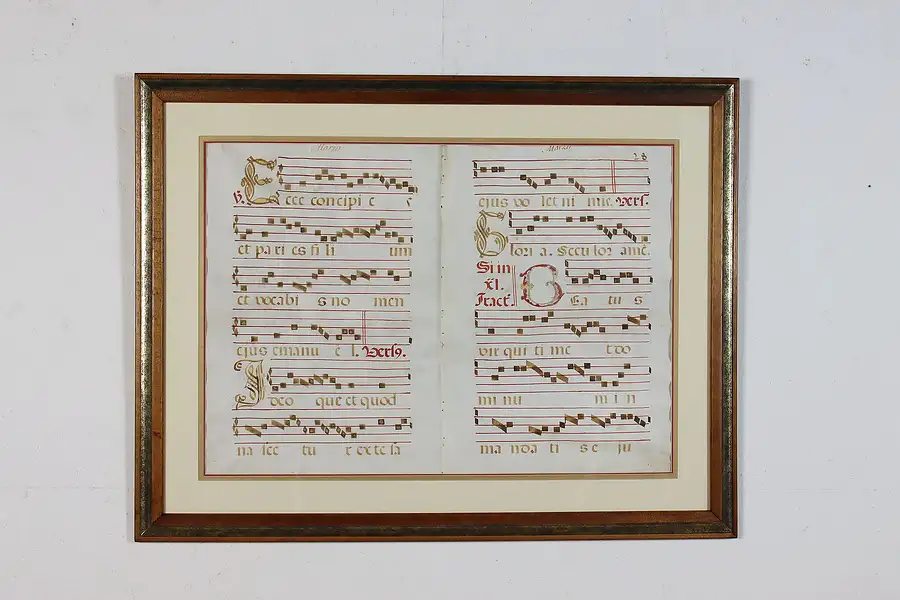 Marzo
℣. Ecce concipi e
et pa ri es fi li um
et vocabi s no men
ejus emanu e l. Vers9.
Ideo que et quod
na sce tu r ex te sa
Marzo 28
ejus vo let ni mie. Vers.
Glori a. Seculor amē.
Si in
xl.
Tract. Bea tu s
vir qui ti me t do
mi nu m i n
ma nda ti s e ju